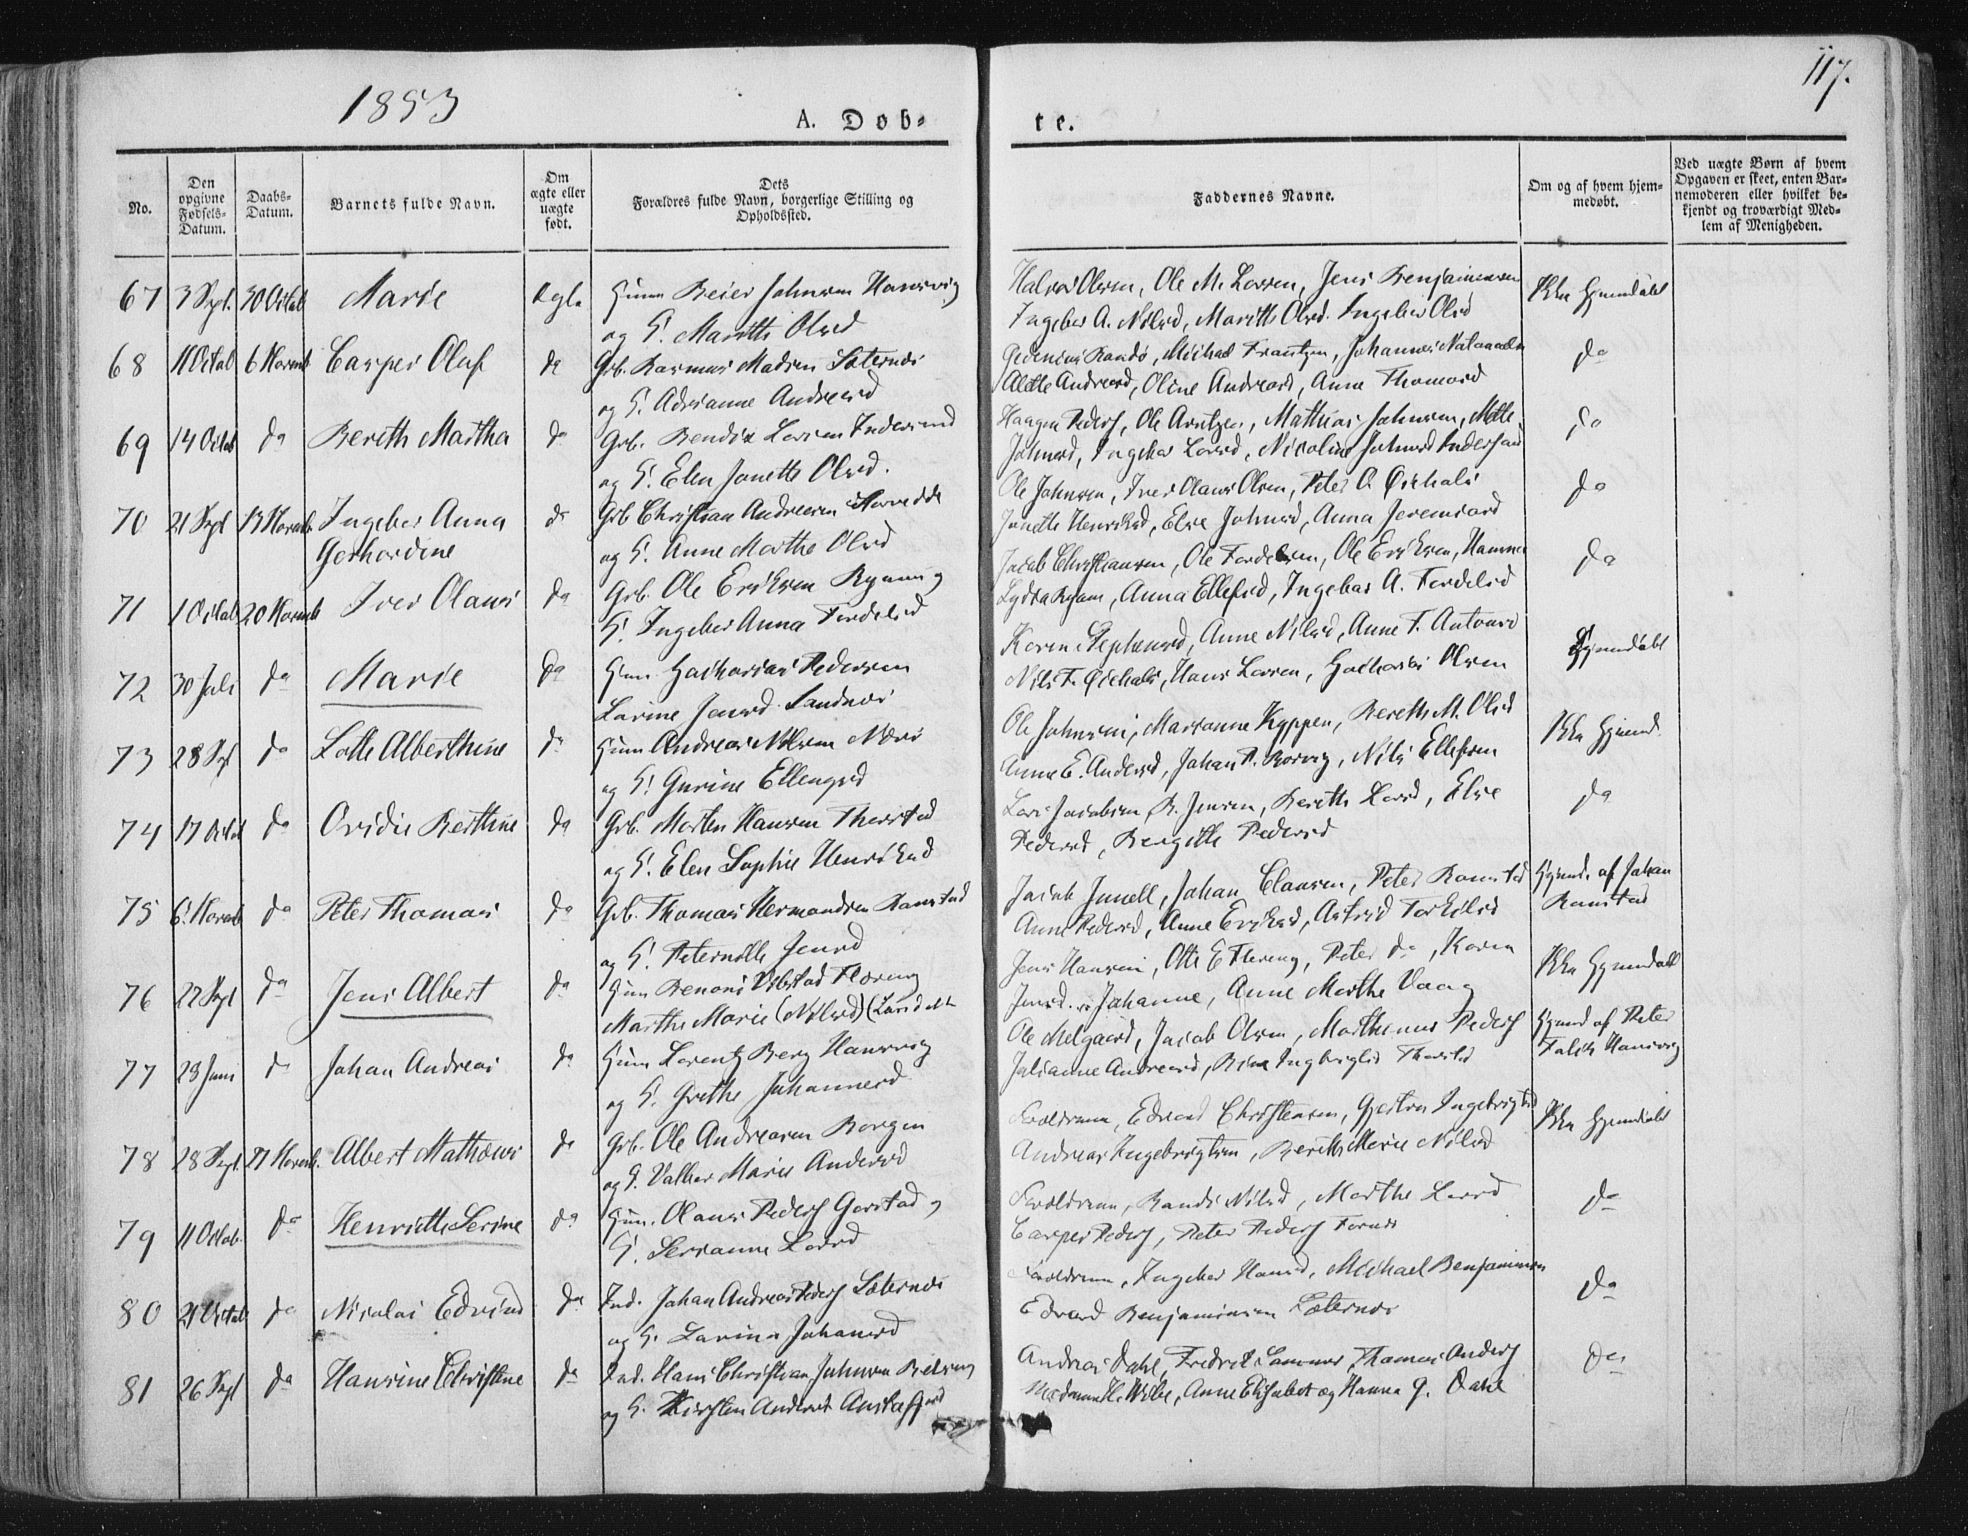 1853
117.
A. Døb-
te.
No.
Den opgivne Fødsels-Datum.
Daabs-Datum.
Barnets fulde Navn.
Om ægte eller uægte født.
Dets Forældres fulde Navn, borgerlige Stilling og Opholdssted.
Faddernes Navne.
Om og af hvem hjem-medøbt.
Ved uægte Børn af hvem Opgaven er skeet, enten Bar-nemoderen eller hvilket be-kjendt og troværdigt Med-lem af Menigheden.
67 3 Sept. 30 Octob Marie Ægte Huusm Beier Johnsen Hansvig
og H. Marith Olsd
Halvor Olsen, Ole M. Larsen, Jens Benjaminsen
Ingebor A. Nilsd, Marith Olsd. Ingebor Olsd
Ikke Hjemdøbt
68 11 Octob 6 Novemb Casper Oluf da Grb. Rasmus Madsen Sæternes
og H. Adrianne Andreasd
Michael Frantzen, Johannes
Alette Andreasd, Oline Andreasd, Anne Thomasd
da
69 14 Octob da Bereth Martha da Grb. Bendix Larsen Indresund
og H. Elen Janette Olsd.
Haagen Peders, Ole Arntzen, Mathias Johnsen, Mette
Johnsd, Ingebor Larsd, Nicoline Johnsd
da
70 21 Sept 13 Novemb. Ingebor Anna
Gerhardine
da Grb Christian Andreasen
og H. Anne Marthe Olsd
Ole Johnsen, Iver Olaus Olsen, Peter O.
Janette Henriksd, Else Johnsd, Anna Jeremiasd
da
71 1 Octob 20 Novemb Iver Olaus da Grb. Ole Eriksen Ryum og
H. Ingebor Anna Fordelsd
Jacob Christiansen, Ole Fordelsen, Ole Eriksen, Hanna
Lydia Ryum, Anna Ellefsd, Ingebor A. Fordelsd
da
72 30 Juli da Marie da Huusm Zacharias Pedersen
Larine Jensd Sandnes
Karen Stephensd, Anne Nilsd, Anne F. Antonsd
Nils F., Hans Larsen, Zacharias Olsen
Hjemdøbt
73 28 Sept da Lotte Alberthine da Huusm Andreas Nilsen Næss
og H. Gurine Ellingsd
Ole Johnsen, Marianne Kyppen, Bereth M. Olsd
Anne E. Andersd, Johan P. Rørvig, Nils Ellefsen
Ikke Hjemd.
74 17 Octob da Ovidie Berthine da Grb. Morten Hansen Therstad
og H. Elen Sophie Henriksd
Lars Jacobsen, B. Jensen, Bereth Larsd, Else
Pedersd, Bergitte Pedersd
da
75 6 Novemb da Peter Thomas da Grb. Thomas Hermandsen Ramstad
og H. Peternelle Jensd
Jacob Junell, Johan Clausen, Peter Ramstad
Anne Pedersd, Anne Eriksd, Astrid Torkilsd
Hjemd. af Johan
Ramstad
76 22 Sept da Jens Albert da Huusm Benoni
Marthe Marie (Nilsd)
Jens Hansen, Otte E Flereng, Peter da, Karen
Jensd. Johanne, Anne Marthe Vaag
Ikke Hjemdøbt
77 28 Juni da Johan Andreas da Huusm Lorentz Berg Hansvig
og H. Grethe Johannesd
Ole Melgaard, Jacob Olsen, Marthinus Peders
Julianne Andreasd, Therstad
Hjemd af Peter
Falch Hansvig
78 28 Sept. 27 Novemb. Albert Mathæus da Grb. Ole Andreasen Borgen
og H. Valber Marie Andersd
Forældrene, Edvard Christensen, Ingebrigtsd
Andreas Ingebrigtsen, Bereth Marie Nilsd
Ikke Hjemdøbt
79 11 Octob. da Henriette Serine da Huusm. Olaus Peders Gorstad og
H. Serianne Larsd
Forældrene, Randi Nilsd, Marthe Larsd
Casper Peders, Peter Peders Fornes
da
80 21 Octob da Nicolai Edvind da Ind. Johan Andreas Peders Sæternes
og H. Larina Johansd
Forældrene, Ingebor Hansd, Michael Benjaminsen
Edvard Benjaminsen Sæternes
da
81 26 Sept da Hansine Christine da Ind. Hans Christian Johnsen
og H. Kirsten Andersd
Andreas Dahl, Fredrik, Thomas Anders
Madame, Anne Elisabet og Hanna G. Dahl
da